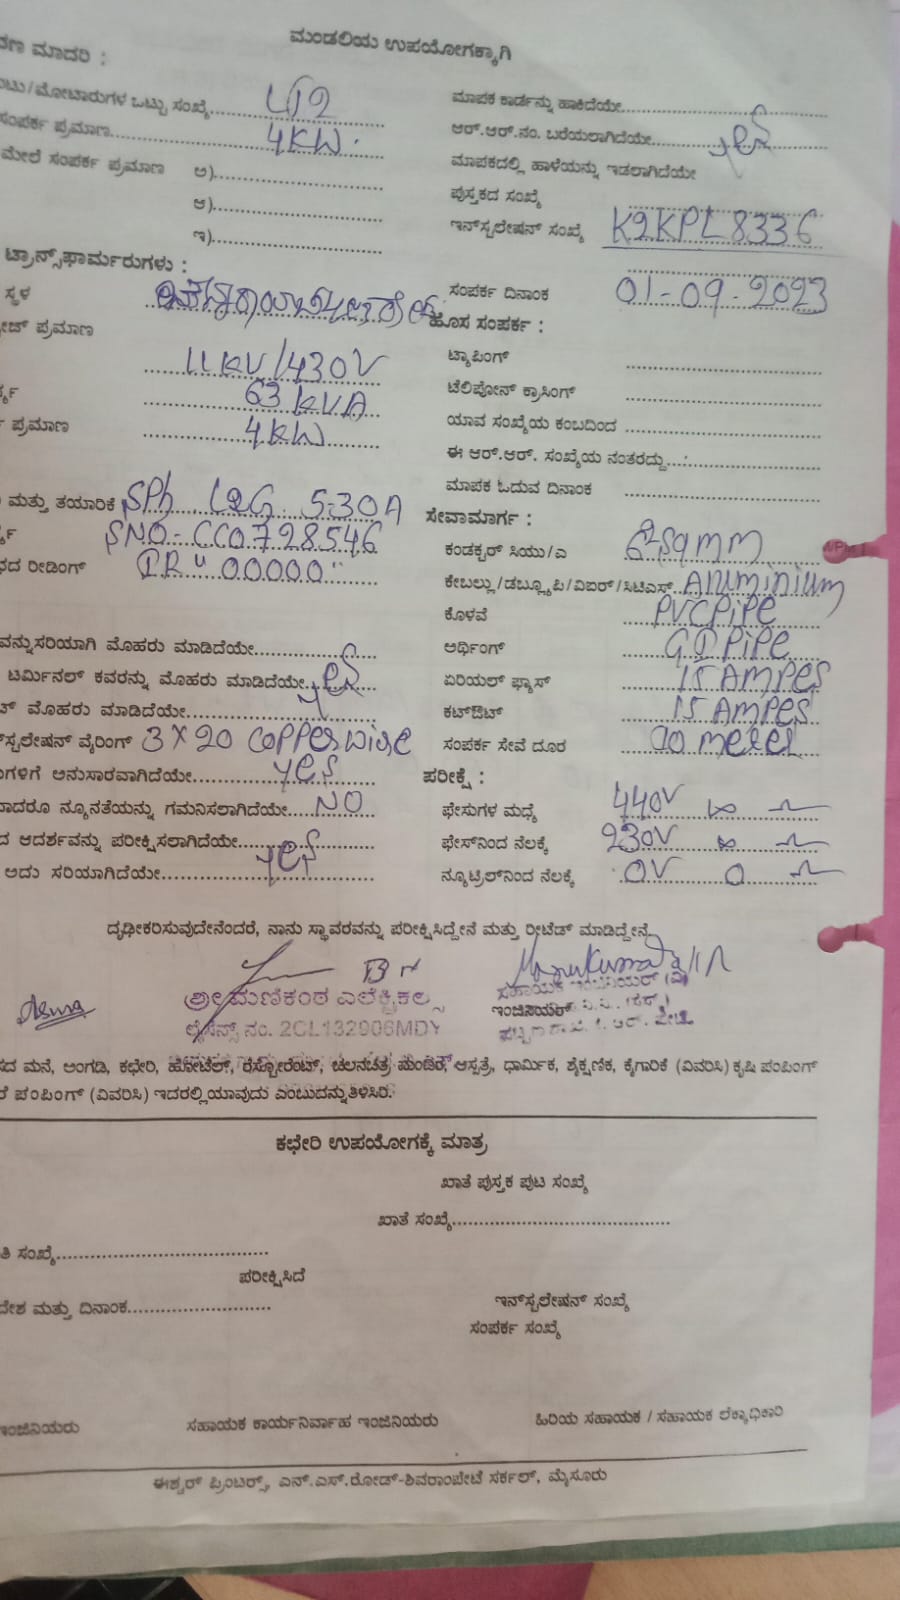 ಮಂಡಲಿಯ ಉಪಯೋಗಕ್ಕಾಗಿ
ಮಾದರಿ :
ಮೋಟಾರುಗಳ ಒಟ್ಟು ಸಂಖ್ಯೆ
ಸಂಪರ್ಕ ಪ್ರಮಾಣ 4KW.
ಮೇಲೆ ಸಂಪರ್ಕ ಪ್ರಮಾಣ ಅ)
ಆ)
ಇ)
ಟ್ರಾನ್ಸ್‌ಫಾರ್ಮರುಗಳು :
ಸ್ಥಳ
ಪ್ರಮಾಣ
11KV/430V
63 KVA
ಪ್ರಮಾಣ 4KW
ಮತ್ತು ತಯಾರಿಕೆ SPh L&G 5-30A
SNO-CC0728546
ರೀಡಿಂಗ್ IR "00000"
ಸರಿಯಾಗಿ ಮೊಹರು ಮಾಡಿದೆಯೇ
ಟರ್ಮಿನಲ್ ಕವರನ್ನು ಮೊಹರು ಮಾಡಿದೆಯೇ yes
ಮೊಹರು ಮಾಡಿದೆಯೇ
ವೈರಿಂಗ್ 3 X 20 copper wire
ಅನುಸಾರವಾಗಿದೆಯೇ yes
ನ್ಯೂನತೆಯನ್ನು ಗಮನಿಸಲಾಗಿದೆಯೇ NO
ಆದರ್ಶವನ್ನು ಪರೀಕ್ಷಿಸಲಾಗಿದೆಯೇ yes
ಅದು ಸರಿಯಾಗಿದೆಯೇ
ಮಾಪಕ ಕಾರ್ಡನ್ನು ಹಾಕಿದೆಯೇ
ಆರ್.ಆರ್.ನಂ. ಬರೆಯಲಾಗಿದೆಯೇ yes
ಮಾಪಕದಲ್ಲಿ ಹಾಳೆಯನ್ನು ಇಡಲಾಗಿದೆಯೇ
ಪುಸ್ತಕದ ಸಂಖ್ಯೆ
ಇನ್‌ಸ್ಟಲೇಷನ್ ಸಂಖ್ಯೆ K2KPL8336
ಸಂಪರ್ಕ ದಿನಾಂಕ 01-09-2023
ಹೊಸ ಸಂಪರ್ಕ :
ಟ್ಯಾಪಿಂಗ್
ಟೆಲಿಫೋನ್ ಕ್ರಾಸಿಂಗ್
ಯಾವ ಸಂಖ್ಯೆಯ ಕಂಬದಿಂದ
ಈ ಆರ್.ಆರ್. ಸಂಖ್ಯೆಯ ನಂತರದ್ದು
ಮಾಪಕ ಓದುವ ದಿನಾಂಕ
ಸೇವಾಮಾರ್ಗ :
ಕಂಡಕ್ಟರ್ ಸಿಯು/ಎ
ಕೇಬಲ್ಲು/ಡಬ್ಲ್ಯೂಪಿ/ವಿಐಆರ್/ಸಿಟಿಎಸ್ Aluminium
ಕೊಳವೆ PVC PiPe
ಅರ್ಥಿಂಗ್ GI PiPe
ಏರಿಯಲ್ ಫ್ಯೂಸ್ 15 AMPes
ಕಟ್‌ಔಟ್ 15 AMPes
ಸಂಪರ್ಕ ಸೇವೆ ದೂರ
ಪರೀಕ್ಷೆ :
ಫೇಸುಗಳ ಮಧ್ಯೆ 440V ∞
ಫೇಸ್‌ನಿಂದ ನೆಲಕ್ಕೆ 230V ∞
ನ್ಯೂಟ್ರಲ್‌ನಿಂದ ನೆಲಕ್ಕೆ 0V 0
ದೃಢೀಕರಿಸುವುದೇನೆಂದರೆ, ನಾನು ಸ್ಥಾವರವನ್ನು ಪರೀಕ್ಷಿಸಿದ್ದೇನೆ ಮತ್ತು ರೀಟೆಡ್ ಮಾಡಿದ್ದೇನೆ
ಶ್ರೀ ಮಣಿಕಂಠ ಎಲೆಕ್ಟ್ರಿಕಲ್ಸ್
ಲೈಸೆನ್ಸ್ ನಂ. 2CL132906MDY
ಸಹಾಯಕ ಇಂಜಿನಿಯರ್ (ವಿ)
ಇಂಜಿನಿಯರ್
ಮನೆ, ಅಂಗಡಿ, ಕಛೇರಿ, ಹೋಟೆಲ್, ರೆಸ್ಟೋರೆಂಟ್, ಚಲನಚಿತ್ರ ಮಂದಿರ, ಆಸ್ಪತ್ರೆ, ಧಾರ್ಮಿಕ, ಶೈಕ್ಷಣಿಕ, ಕೈಗಾರಿಕೆ (ವಿವರಿಸಿ) ಕೃಷಿ ಪಂಪಿಂಗ್
ಪಂಪಿಂಗ್ (ವಿವರಿಸಿ) ಇದರಲ್ಲಿ ಯಾವುದು ಎಂಬುದನ್ನು ತಿಳಿಸಿರಿ.
ಕಛೇರಿ ಉಪಯೋಗಕ್ಕೆ ಮಾತ್ರ
ಖಾತೆ ಪುಸ್ತಕ ಪುಟ ಸಂಖ್ಯೆ
ಖಾತೆ ಸಂಖ್ಯೆ
ಸಂಖ್ಯೆ
ಪರೀಕ್ಷಿಸಿದೆ
ಮತ್ತು ದಿನಾಂಕ
ಇನ್‌ಸ್ಟಲೇಷನ್ ಸಂಖ್ಯೆ
ಸಂಪರ್ಕ ಸಂಖ್ಯೆ
ಇಂಜಿನಿಯರು ಸಹಾಯಕ ಕಾರ್ಯನಿರ್ವಾಹ ಇಂಜಿನಿಯರು ಹಿರಿಯ ಸಹಾಯಕ / ಸಹಾಯಕ ಲೆಕ್ಕಾಧಿಕಾರಿ
ಈಶ್ವರ್ ಪ್ರಿಂಟರ್ಸ್, ಎನ್.ಎಸ್.ರೋಡ್-ಶಿವರಾಂಪೇಟೆ ಸರ್ಕಲ್, ಮೈಸೂರು